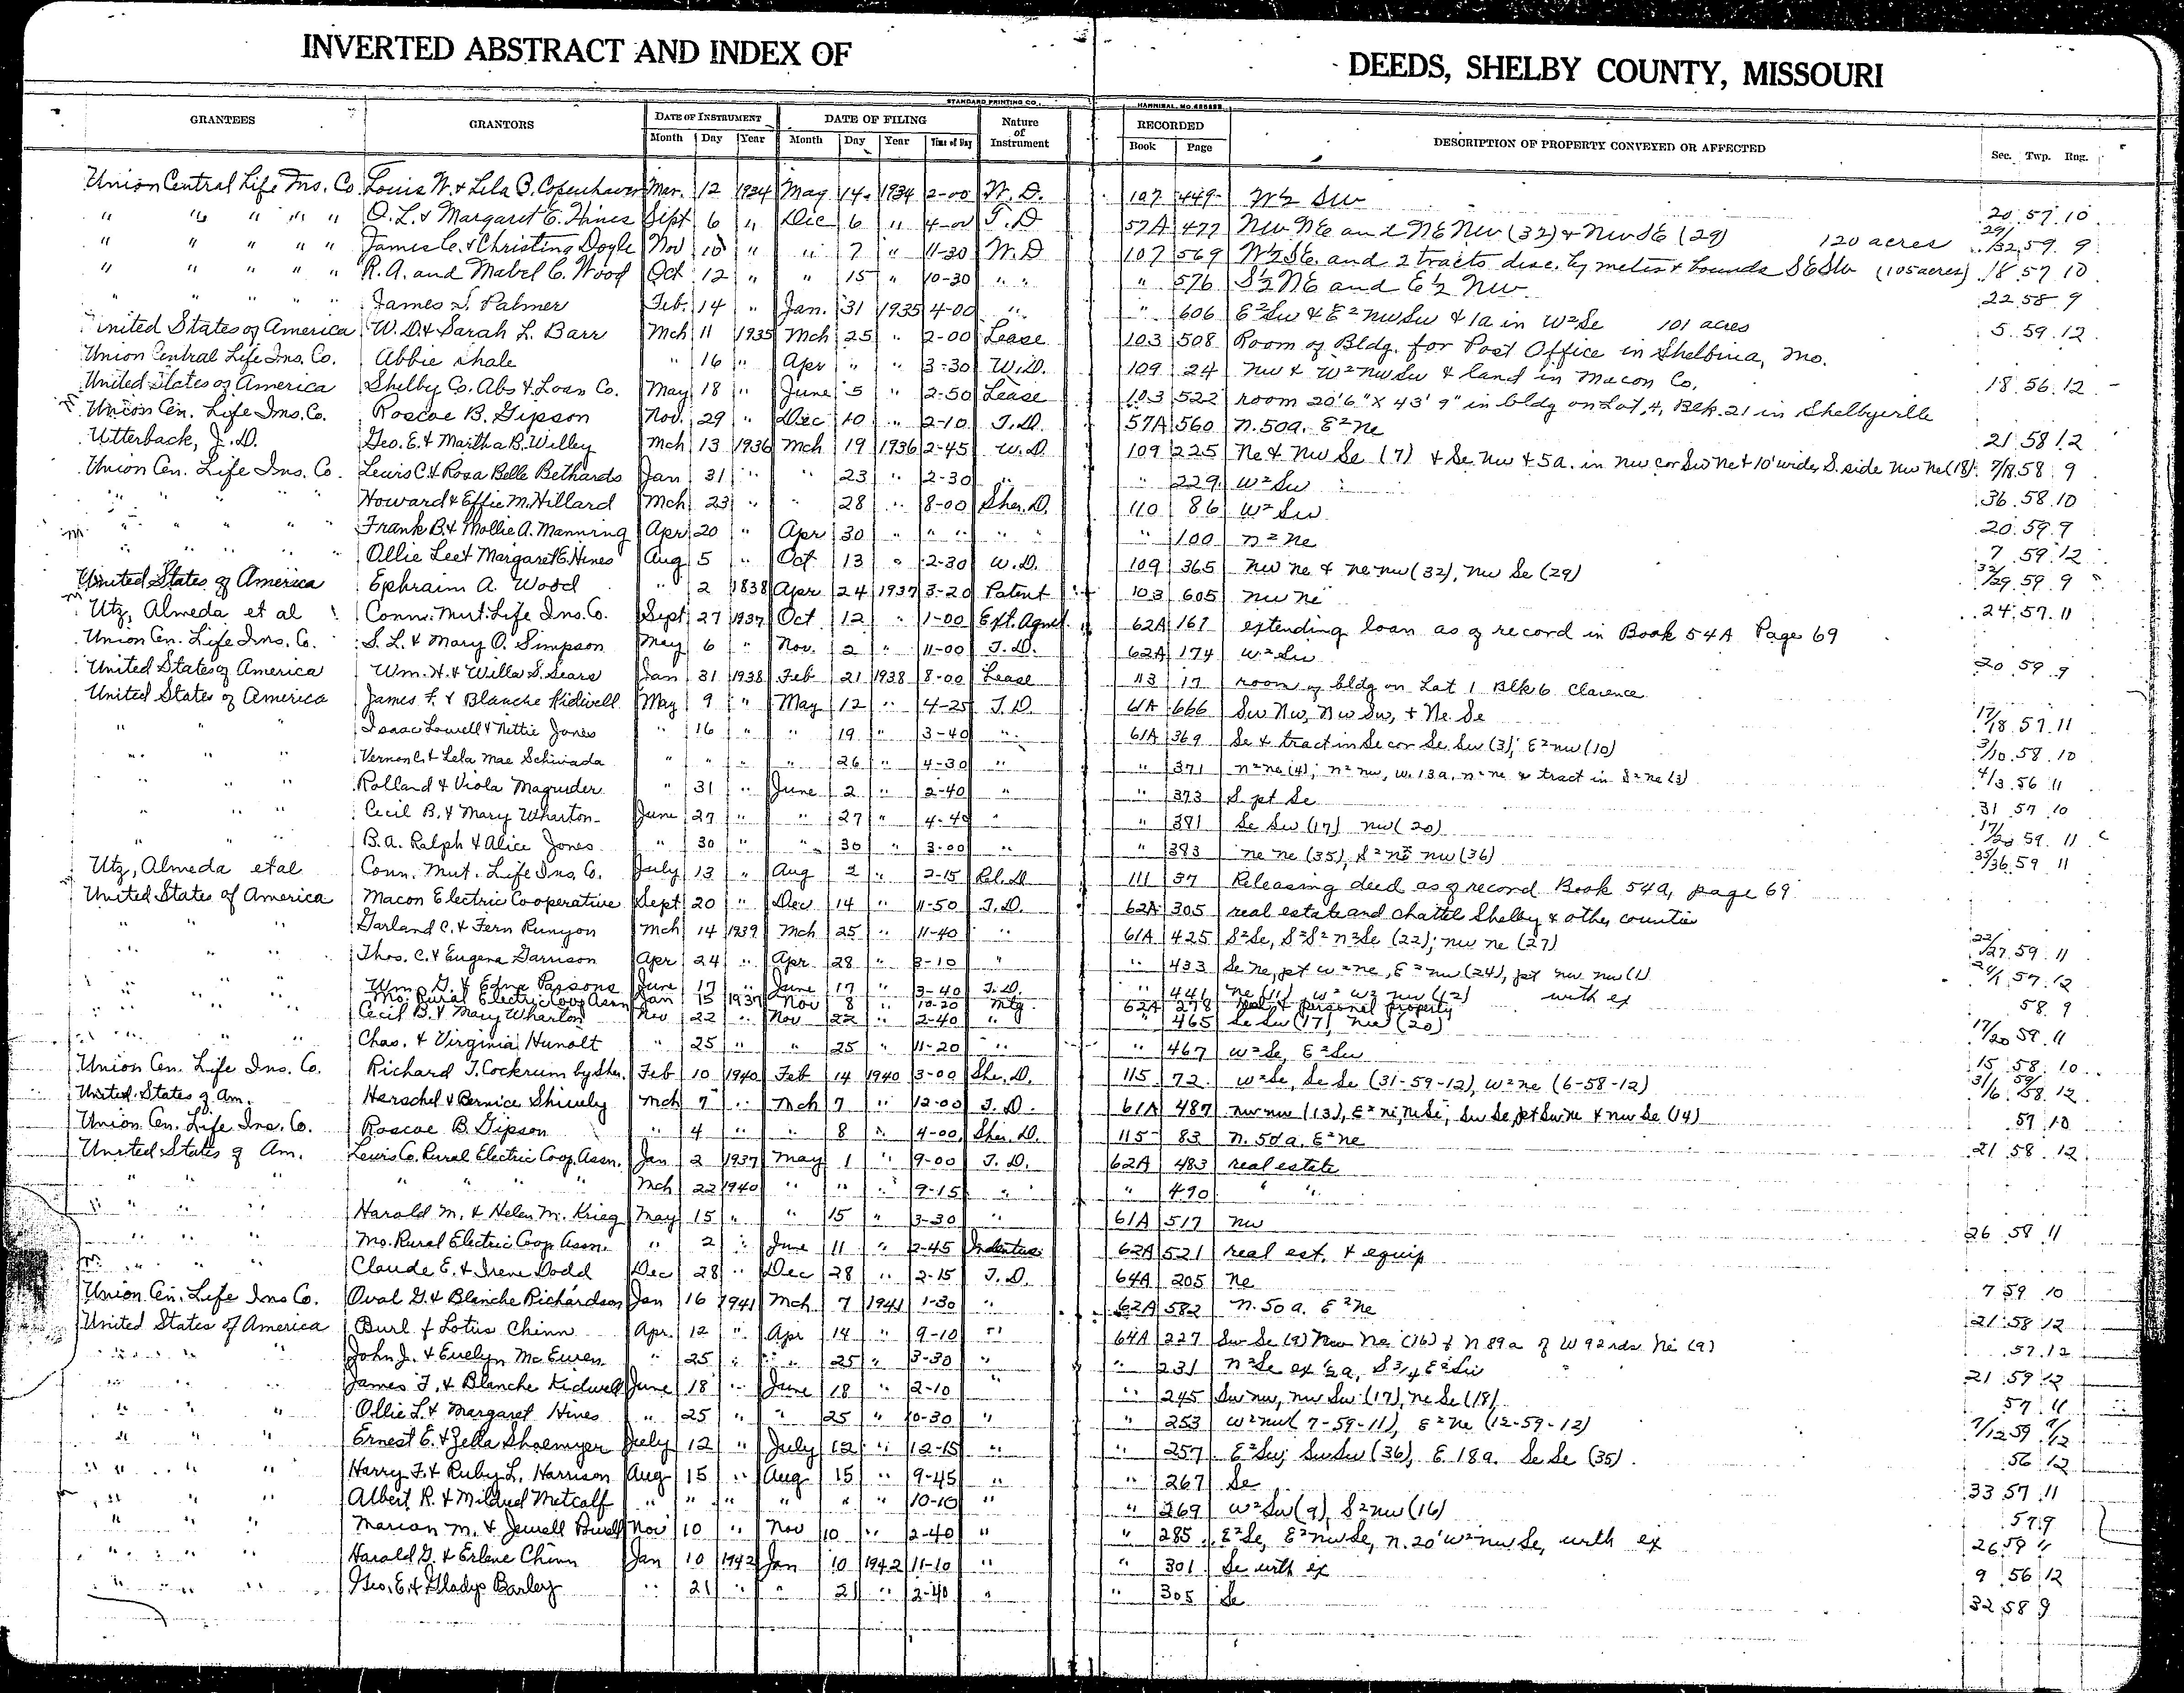 INVERTED ABSTRACT AND INDEX OF DEEDS, SHELBY COUNTY, MISSOURI
STANDARD PRINTING CO., HANNIBAL, MO.
GRANTEES GRANTORS DATE OF INSTRUMENT DATE OF FILING Nature of Instrument RECORDED DESCRIPTION OF PROPERTY CONVEYED OR AFFECTED Sec. Twp. Rng.
Month Day Year Month Day Year Time of Day Book Page
Union Central Life Ins. Co. Louis W. & Lela B. Copenhaver Mar. 12 1934 May 14 1934 2-00 W. D. 107 449 W½ SW 20 57 10
" " " " " O. L. & Margaret E. Hines Sept 6 " Dec 6 " 4-00 T. D 57A 477 NW NE and NE NW (32) & NW SE (29) 120 acres 29/32 59 9
" " " " " James C. & Christina Doyle Nov 10 " " 7 " 11-30 W. D 107 569 W½ SE. and 2 tracts desc. by metes & bounds SE SW (105 acres) 18 57 10
" " " " " R. A. and Mabel C. Wood Oct 12 " " 15 " 10-30 " " " 576 S½ NE and E½ NW. 22 58 9
" " " " James S. Palmer Feb. 14 " Jan. 31 1935 4-00 " " 606 E²SW & E² NWSW & 1a in W²Se 101 acres 5 59 12
United States of America W. D. & Sarah L. Barr Mch 11 1935 Mch 25 " 2-00 Lease 103 508 Room of Bldg. for Post Office in Shelbina, Mo.
Union Central Life Ins. Co. Abbie Shale " 16 " Apr " " 3-30 W. D. 109 24 NW & W² NWSW & land in Macon Co. 18 56 12
United States of America Shelby Co. Abs & Loan Co. May 18 " June 5 " 2-50 Lease 103 522 room 20'6" X 43' 9" in bldg on Lot 4, Blk. 21 in Shelbyville
Union Cen. Life Ins. Co. Roscoe B. Gipson Nov. 29 " Dec 10 " 2-10 T. D. 57A 560 N. 50a. E²ne 21 58 12
Utterback, J. D. Geo. E. & Martha B. Willey Mch 13 1936 Mch 19 1936 2-45 W. D. 109 225 Ne & Nw Se (7) & Se Nw & 5a. in nw cor Sw Ne & 10' wide S. side Nw Ne (18) 7/18 58 9
Union Cen. Life Ins. Co. Lewis C. & Rosa Belle Bethards Jan 31 " " 23 " 2-30 " " 229 W²Sw 36 58 10
" " " " Howard & Effie M. Hillard Mch 23 " " 28 " 8-00 Sher. D. 110 86 W²Sw 20 59 9
" " " " Frank B. & Mollie A. Manning Apr 20 " Apr 30 " " " " " 100 n²ne 7 59 12
" " " " Ollie Lee & Margaret E. Hines Aug 5 " Oct 13 " 2-30 W. D. 109 365 nw ne & ne nw (32), nw Se (29) 32/29 59 9
United States of America Ephraim A. Wood " 2 1838 Apr 24 1937 3-20 Patent 103 605 nw ne 24 57 11
Utz, Almeda et al Conn. Mut. Life Ins. Co. Sept 27 1937 Oct 12 " 1-00 Ext. Agmt. 62A 167 extending loan as of record in Book 54A Page 69
Union Cen. Life Ins. Co. S. L. & Mary O. Simpson May 6 " Nov. 2 " 11-00 T. D. 62A 174 W²Sw 20 59 9
United States of America Wm. H. & Willa S. Sears Jan 31 1938 Feb 21 1938 8-00 Lease 113 17 room of bldg on Lot 1 Blk 6 Clarence
United States of America James F. & Blanche Kidwell May 9 " May 12 " 4-25 T. D. 61A 666 Sw Nw, Nw Sw, & Ne Se 17/18 57 11
" " " Isaac Lowell & Nettie Jones " 16 " " 19 " 3-40 " 61A 369 Se & tract in Se cor Se Sw (3); E²nw (10) 3/10 58 10
" " " Vernon C. & Lela Mae Schwada " " " " 26 " 4-30 " " 371 n²ne (4); n²nw, w. 13a, n²ne & tract in S²ne (3) 4/3 56 11
" " " Rolland & Viola Magruder " 31 " June 2 " 2-40 " " 373 S. pt Se 31 57 10
" " " Cecil B. & Mary Wharton June 27 " " 27 " 4-40 " " 381 Se Sw (17) nw (20) 17/20 59 11
" " " B. A. Ralph & Alice Jones " 30 " " 30 " 3-00 " " 383 ne ne (35), S²ne nw (36) 35/36 59 11
Utz, Almeda et al Conn. Mut. Life Ins. Co. July 13 " Aug 2 " 2-15 Rel. D 111 37 Releasing deed as of record Book 54A, page 69
United States of America Macon Electric Cooperative Sept 20 " Dec 14 " 11-50 T. D. 62A 305 real estate and chattel Shelby & other counties
" " " Garland C. & Fern Runyon Mch 14 1939 Mch 25 " 11-40 " 61A 425 S²Se, S²S² n²Se (22); nw ne (27) 22/27 59 11
" " " Thos. C. & Eugena Garrison Apr 24 " Apr 28 " 3-10 " " 433 Se ne, pt w²ne, E²nw (24), pt nw nw (1) 24/1 57 12
" " " Wm. G. & Edna Parsons June 17 " June 17 " 3-40 T. D. " 441 ne (11), w² w² nw (12) with ex 58 9
Mo. Rural Electric Coop Assn Jan 15 1937 Nov 8 " 10-20 Mtg. 62A 278 real & personal property
" " " Cecil B. & Mary Wharton Nov 22 " Nov 22 " 2-40 " " 465 Se Sw (17), nw (20) 17/20 59 11
" " " Chas. & Virginia Hunolt " 25 " " 25 " 11-20 " " 467 w²Se, E²Sw 15 58 10
Union Cen. Life Ins. Co. Richard T. Cockrum by Sher. Feb 10 1940 Feb 14 1940 3-00 She. D. 115 72 w²Se, Se Se (31-59-12), w²ne (6-58-12) 31/6 59/58 12
United States of Am. Herschel & Bernice Shively Mch 7 " Mch 7 " 12-00 T. D. 61A 487 nw nw (13), E²ne, ne Se, Sw Se, pt Sw ne & nw Se (14) 57 10
Union Cen. Life Ins. Co. Roscoe B. Gipson " 4 " " 8 " 4-00 Sher. D. 115 83 n. 50 a. E²ne 21 58 12
United States of Am. Lewis Co. Rural Electric Coop. Assn. Jan 2 1937 May 1 " 9-00 T. D. 62A 483 real estate
" " " " " " " Mch 22 1940 " " " 9-15 " " 490 " "
" " " Harold M. & Helen M. Krieg May 15 " " 15 " 3-30 " 61A 517 nw 26 58 11
" " " Mo. Rural Electric Coop Assn. " 2 " June 11 " 2-45 Indenture 62A 521 real est. & equip
" " " Claude E. & Irene Dodd Dec 28 " Dec 28 " 2-15 T. D. 64A 205 ne 7 59 10
Union Cen. Life Ins Co. Oval G. & Blanche Richardson Jan 16 1941 Mch 7 1941 1-30 " 62A 582 n. 50 a. E²ne 21 58 12
United States of America Burl & Lotus Chinn Apr. 12 " Apr 14 " 9-10 " 64A 227 Sw Se (9) Nw Ne (16) & N 89a of W 92 rds Ne (9) 57 12
" " " John J. & Evelyn McEwen " 25 " " 25 " 3-30 " " 231 n²Se ex ½a, S¾ E²Sw 21 59 12
" " " James F. & Blanche Kidwell June 18 " June 18 " 2-10 " " 245 Sw nw, nw Sw (17), ne Se (18) 57 11
" " " Ollie L. & Margaret Hines " 25 " " 25 " 10-30 " " 253 w²nw (7-59-11), E²ne (12-59-12) 7/12 59 11/12
" " " Ernest E. & Zella Shoemyer July 12 " July 12 " 12-15 " " 257 E²Sw, SwSw (36), E. 18a. Se Se (35) 56 12
" " " Harry F. & Ruby L. Harrison Aug 15 " Aug 15 " 9-45 " " 267 Se 33 57 11
" " " Albert R. & Mildred Metcalf " " " " " " 10-10 " " 269 w²Sw (9), S²nw (16) 57 9
" " " Marion M. & Jewell Nov 10 " Nov 10 " 2-40 " " 285 E²Se, E²nwSe, n. 20' w²nw Se, with ex 26 59 11
" " " Harold G. & Erlene Chinn Jan 10 1942 Jan 10 1942 11-10 " " 301 Se with ex 9 56 12
" " " Geo. E. & Gladys Barley " 21 " " 21 " 2-40 " " 305 Se 32 58 9